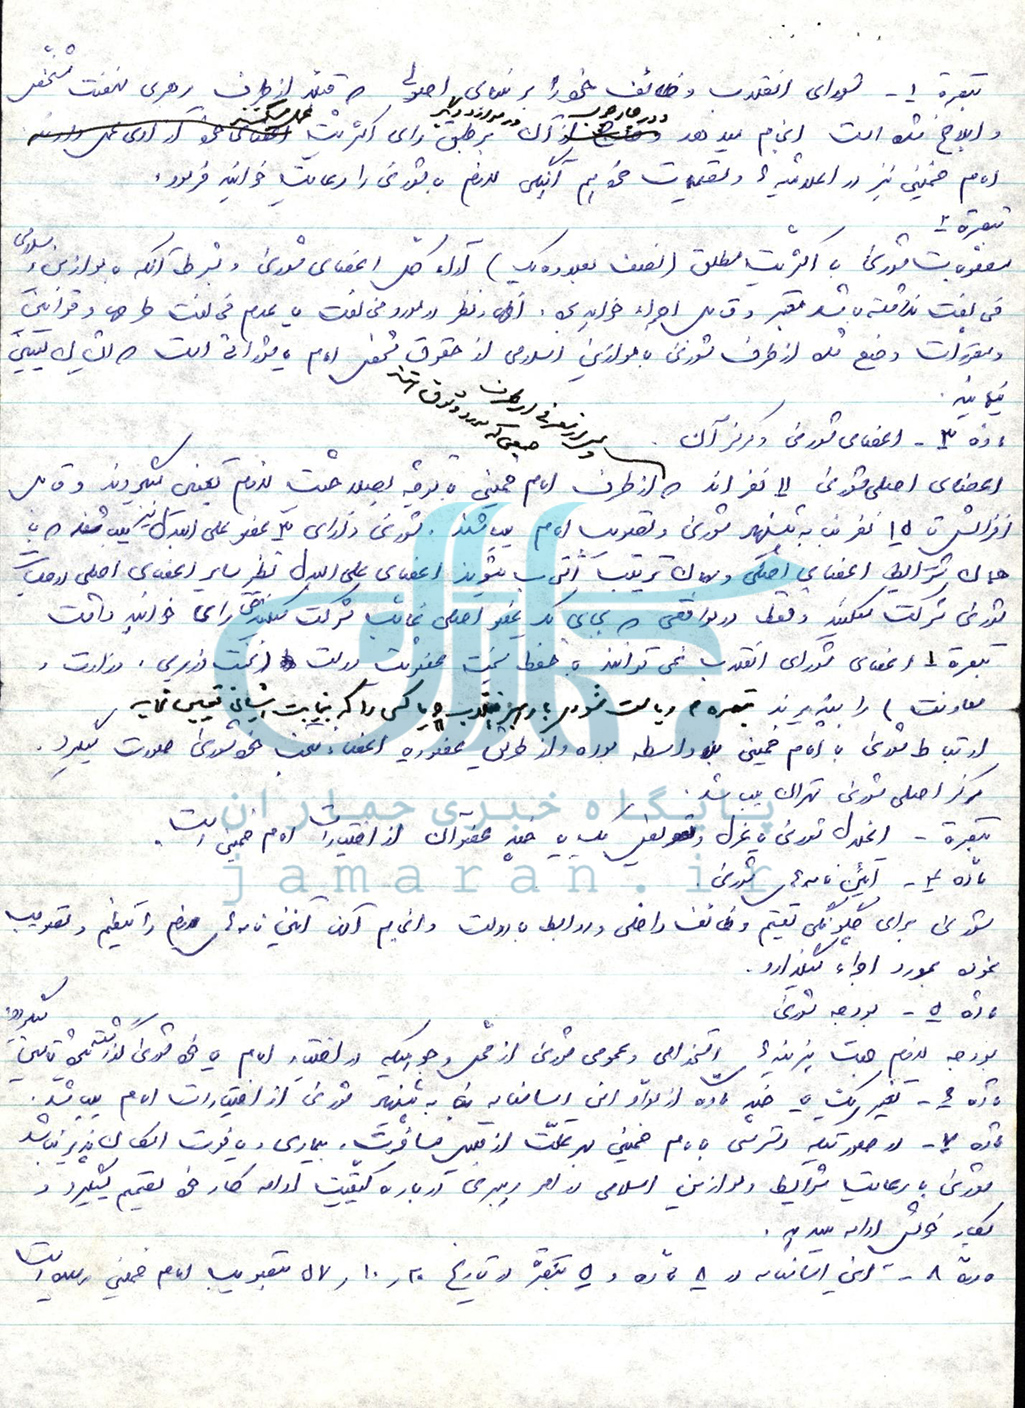 تبصره ۱ - شورای انقلاب وظائف خود را بر مبنای اصولی که قبلا از طرف رهبری نهضت مشخص
و ابلاغ شده است انجام میدهد و در خارج از آن بر طبق رای اکثریت عمل میکند
امام خمینی نیز در اعلامیه ها و تصمیمات خود هم آهنگی لازم با شوری را رعایت خواهند فرمود.
تبصره ۲
مصوبات شوری با اکثریت مطلق (نصف بعلاوه یک) آراء کل اعضای شوری و بشرط آنکه با موازین اسلامی
مخالفت نداشته باشد معتبر و قابل اجراء خواهد بود. اظهار نظر در مورد مخالفت یا عدم مخالفت طرحها و قوانین
و مقررات وضع شده از طرف شوری با موازین اسلامی از حقوق شخص امام یا فقهائی است که ایشان تعیین
نمایند.
ماده ۳ - اعضای شوری و مرکز آن.
پس از معرفی از طرف
جمعی که مورد وثوق هستند
اعضای اصلی شوری ۱۱ نفرند که از طرف امام خمینی با توجه بصلاحیت لازم تعیین میشوند و قابل
افزایش تا ۱۵ نفر بنا به پیشنهاد شوری و تصویب امام میباشند. شوری دارای ۳ عضو علی البدل نیز میباشد که با
همان شرایط اعضای اصلی و بهمان ترتیب انتخاب میشوند اعضای علی البدل نظیر سایر اعضای اصلی در جلسات
شوری شرکت میکنند و فقط در مواقعی که بجای یک عضو اصلی غائب شرکت میکنند حق رای خواهند داشت
تبصره ۱ اعضای شورای انقلاب نمی توانند با حفظ سمت عضویت دولت (نخست وزیری، وزارت و
معاونت) را بپذیرند تبصره ۲ ریاست شوری با رهبر انقلاب و یا کسی را که به نیابت ایشان تعیین نمایند
ارتباط شوری با امام خمینی بلاواسطه بوده و از طریق عضو یا اعضاء منتخب خود شوری صورت میگیرد.
مرکز اصلی شوری تهران میباشد.
تبصره - انحلال شوری یا عزل و تعویض یک یا چند عضو آن از اختیارات امام خمینی است.
ماده ۴ - آئین نامه های شوری.
شوری برای چگونگی تقسیم وظائف داخلی و روابط با دولت و انجام آن آئین نامه های لازم را تنظیم و تصویب
نموده بمورد اجراء میگذارد.
ماده ۵ - بودجه شوری
بودجه لازم جهت هزینه های استخدامی و عمومی شوری از محل وجوهیکه در اختیار امام یا خود شوری گذاشته میشود تامین میگردد.
ماده ۶ - تغییر یک یا چند ماده از مواد این اساسنامه بنا به پیشنهاد شوری از اختیارات امام میباشد.
ماده ۷ - در صورتیکه دسترسی به امام خمینی بهر علت از قبیل مسافرت، بیماری و یا فوت امکان پذیر نباشد
شوری با رعایت شرایط و موازین اسلامی در امر رهبری درباره کیفیت ادامه کار خود تصمیم میگیرد و
بکار خویش ادامه میدهد.
ماده ۸ - این اساسنامه در ۸ ماده و ۵ تبصره در تاریخ ۲۰ ر ۱۰ ر ۵۷ بتصویب امام خمینی رسیده است
پایگاه خبری جماران
jamaran.ir